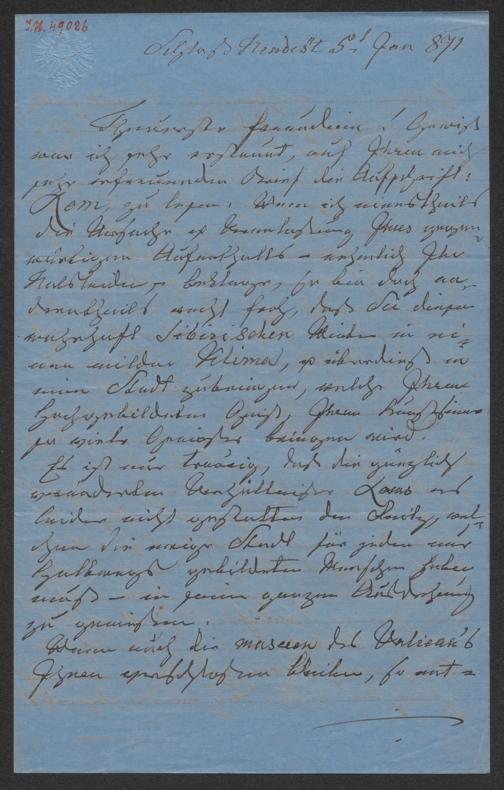 I.N. 49026
Schloß 5t Jan 891
Theuerste Freundin! Gewiß
war ich sehr erstaunt, auf Ihren mich
sehr erfreuenden Brief die Aufschrift:
Rom, zu lesen. Wenn ich einestheils
die Ursache & Veranlassung Ihres gegen-
wärtigen Aufenthalts – nehmlich Ihr
Halsleiden – beklage, so bin doch an-
derentheils recht froh, daß Sie diesen
wahrhaft Sibirischen Winter in ei-
nem milden Klima, & überdieß in
einer Stadt zubringen, welche Ihrem
hochgebildeten Geist, Ihrem Kunstsinne
so viele Genüsse bringen wird.
Es ist nur traurig, daß die gänzlich
veränderten Verhältnisse Roms es
leider nicht gestatten den Reitz, wel-
chen die ewige Stadt für jeden nur
halbwegs gebildeten Menschen haben
muß – in seiner ganzen Ausdehnung
zu genießen.
Wenn auch die museen des Vatican's
Ihnen verschlossen bleiben, so ent-